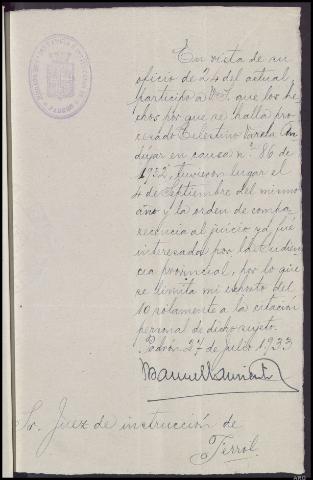 En vista de su
oficio de 24 del actual,
participo a V.S. que los he-
chos por que se halla pro-
cesado Celestino Varela An
dújar en causa nº 86 de
1932, tuvieron lugar el
4 de Septiembre del mismo
año y la orden de compa-
recencia al juicio fué
interesada por la Audien-
cia provincial, por lo que
se limita mi exhorto del
10 solamente a la citación
personal de dicho sujeto.
Padrón 27 de julio 1933
Manuel
Sr. Juez de instrucción de
Ferrol.